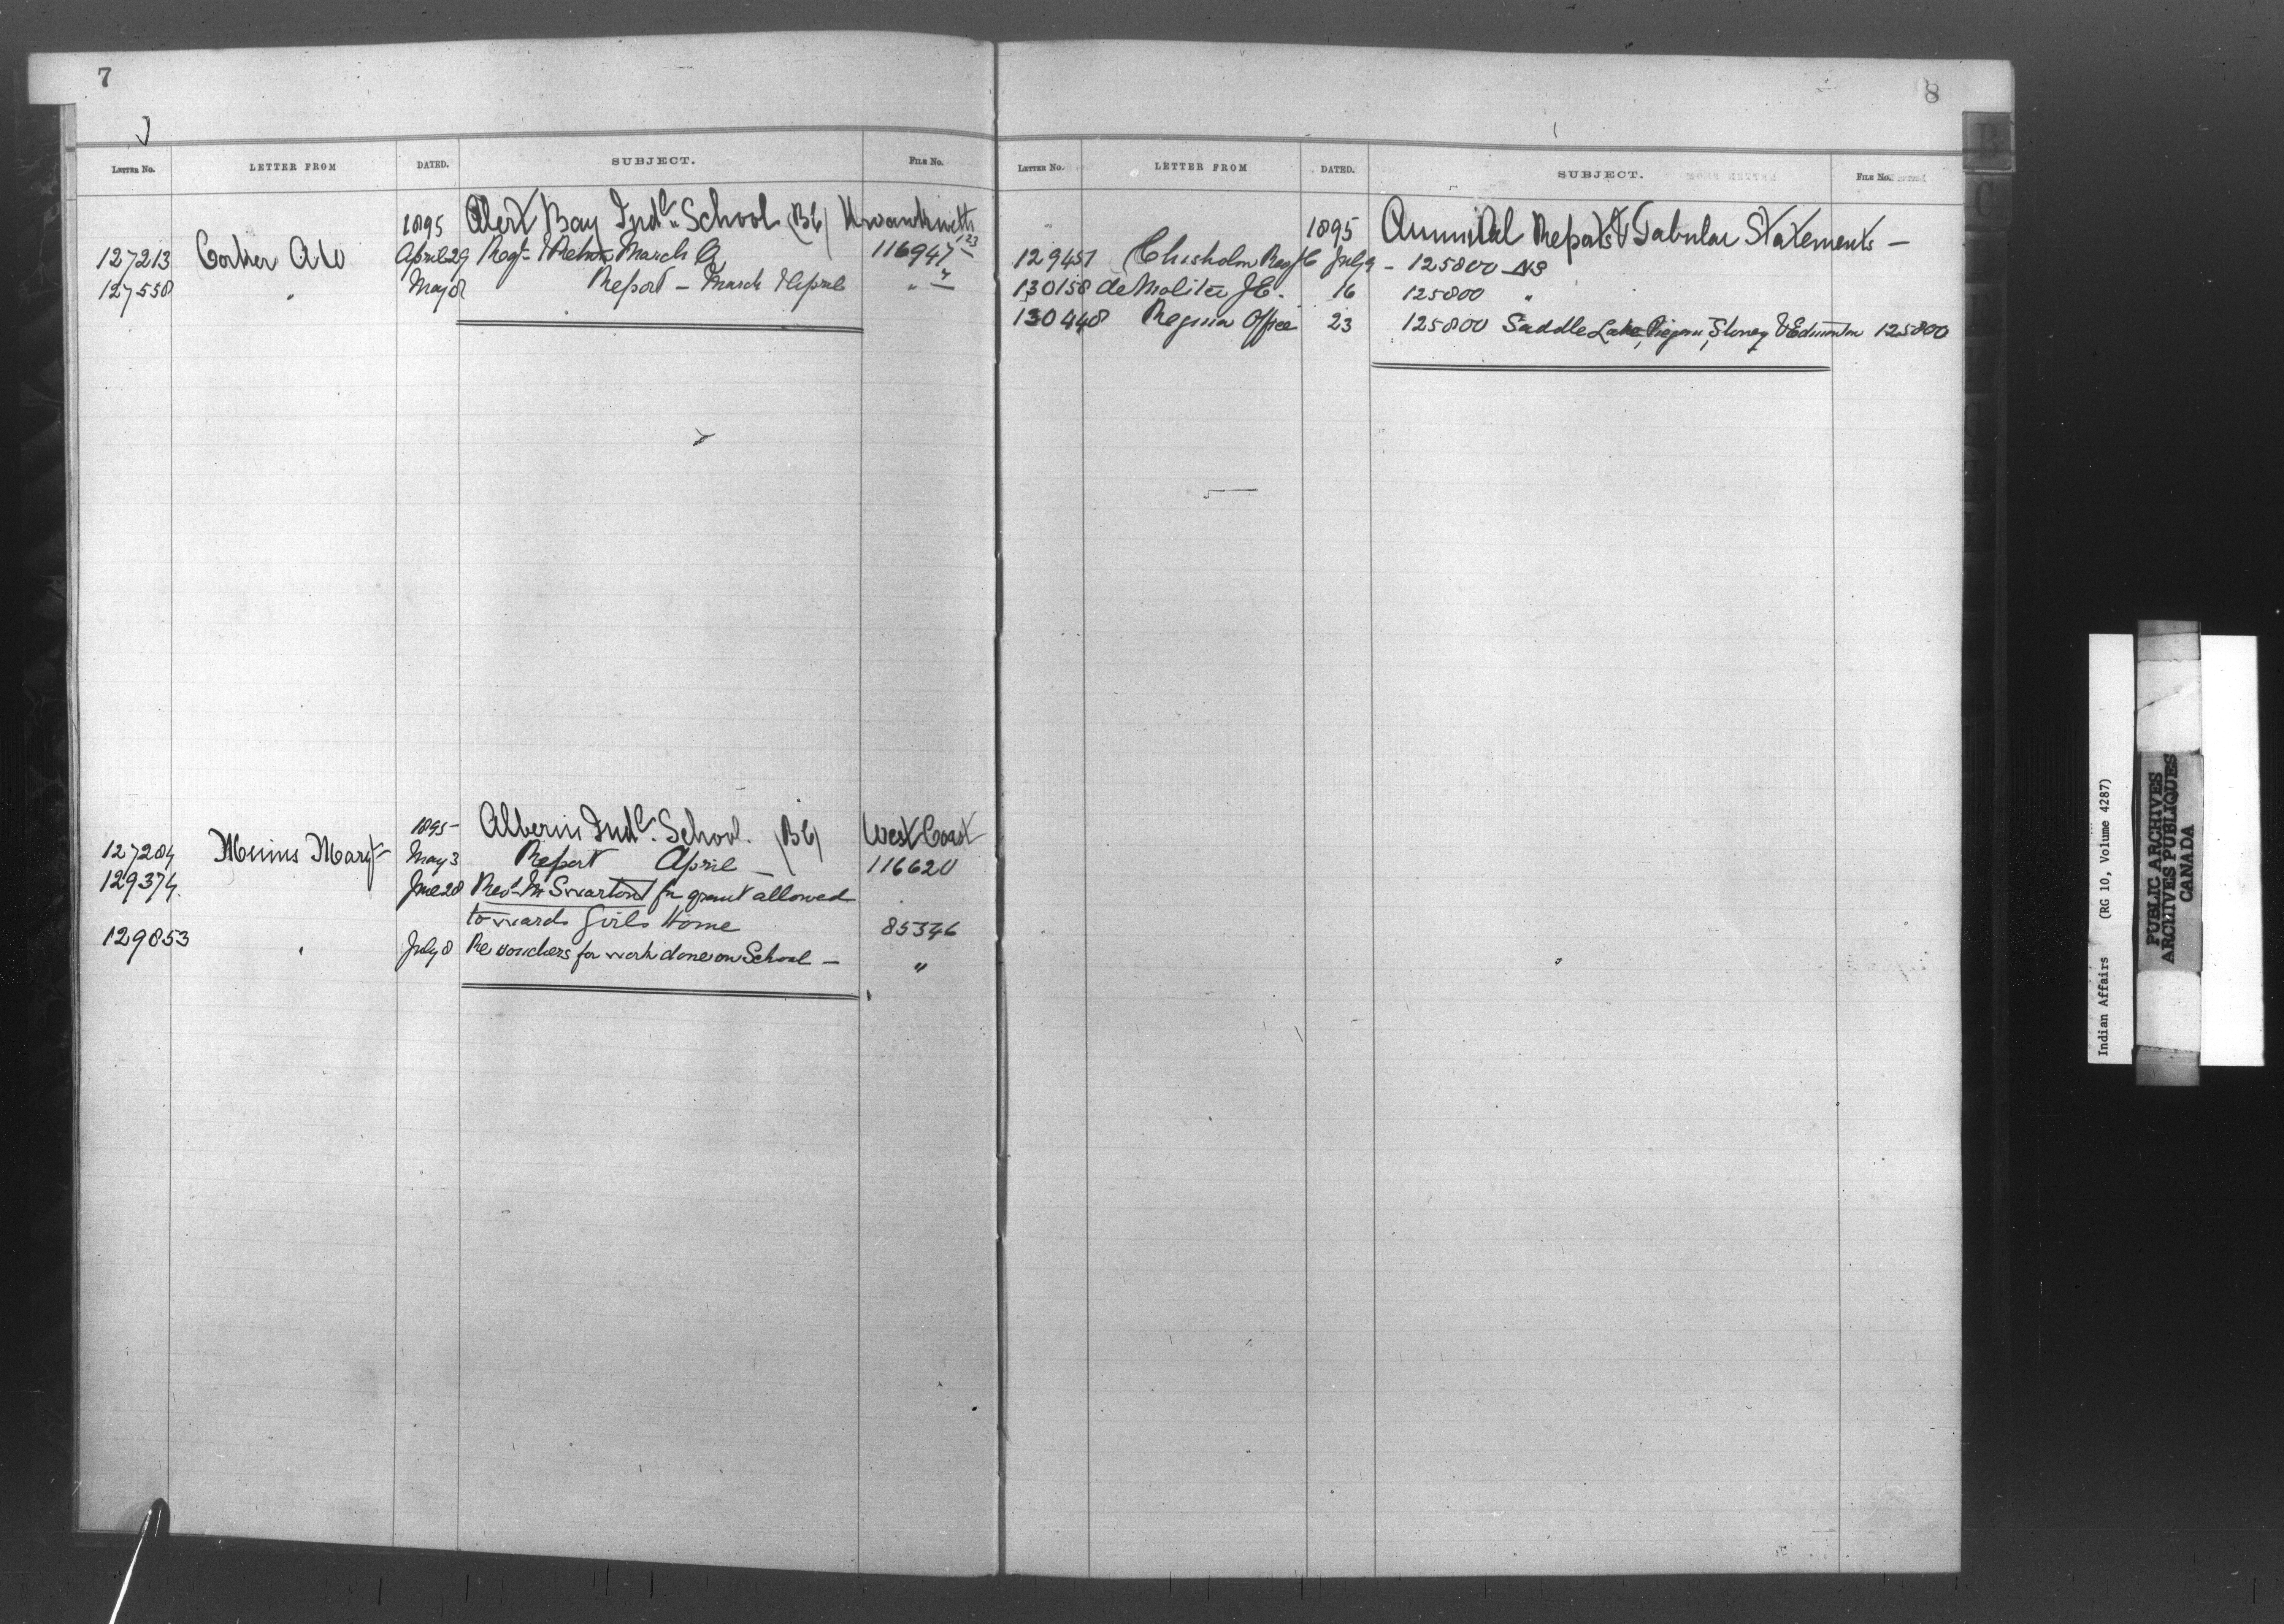 7
LETTER NO. LETTER FROM DATED. SUBJECT. FILE NO.
1895 Alert Bay Indl. School (BC) Kwawkewlth
127213 Corker A W April 29 Regr. & Return March Q 116947
127558 " May 8 Report - March & April " "
1895 Alberni Indl. School. (BC) West Coast
127284 Minnes Mary May 3 Report April - 116620
129374. June 28 Rev. Mr Swartout for grant allowed
towards Girls Home 85346
129853 " July 8 Re vouchers for work done on School - "
8
B
C
LETTER NO. LETTER FROM DATED. SUBJECT. FILE NO.
1895 Annual Reports & Tabular Statements -
129457 Chisholm Rev July 9 - 125800 NS
130158 de Molitor J E. 16 125800 "
130448 Regina Office 23 125800 Saddle Lake, Piegan, Stoney & Edmonton 125800
Indian Affairs (RG 10, Volume 4287)
PUBLIC ARCHIVES
ARCHIVES PUBLIQUES
CANADA